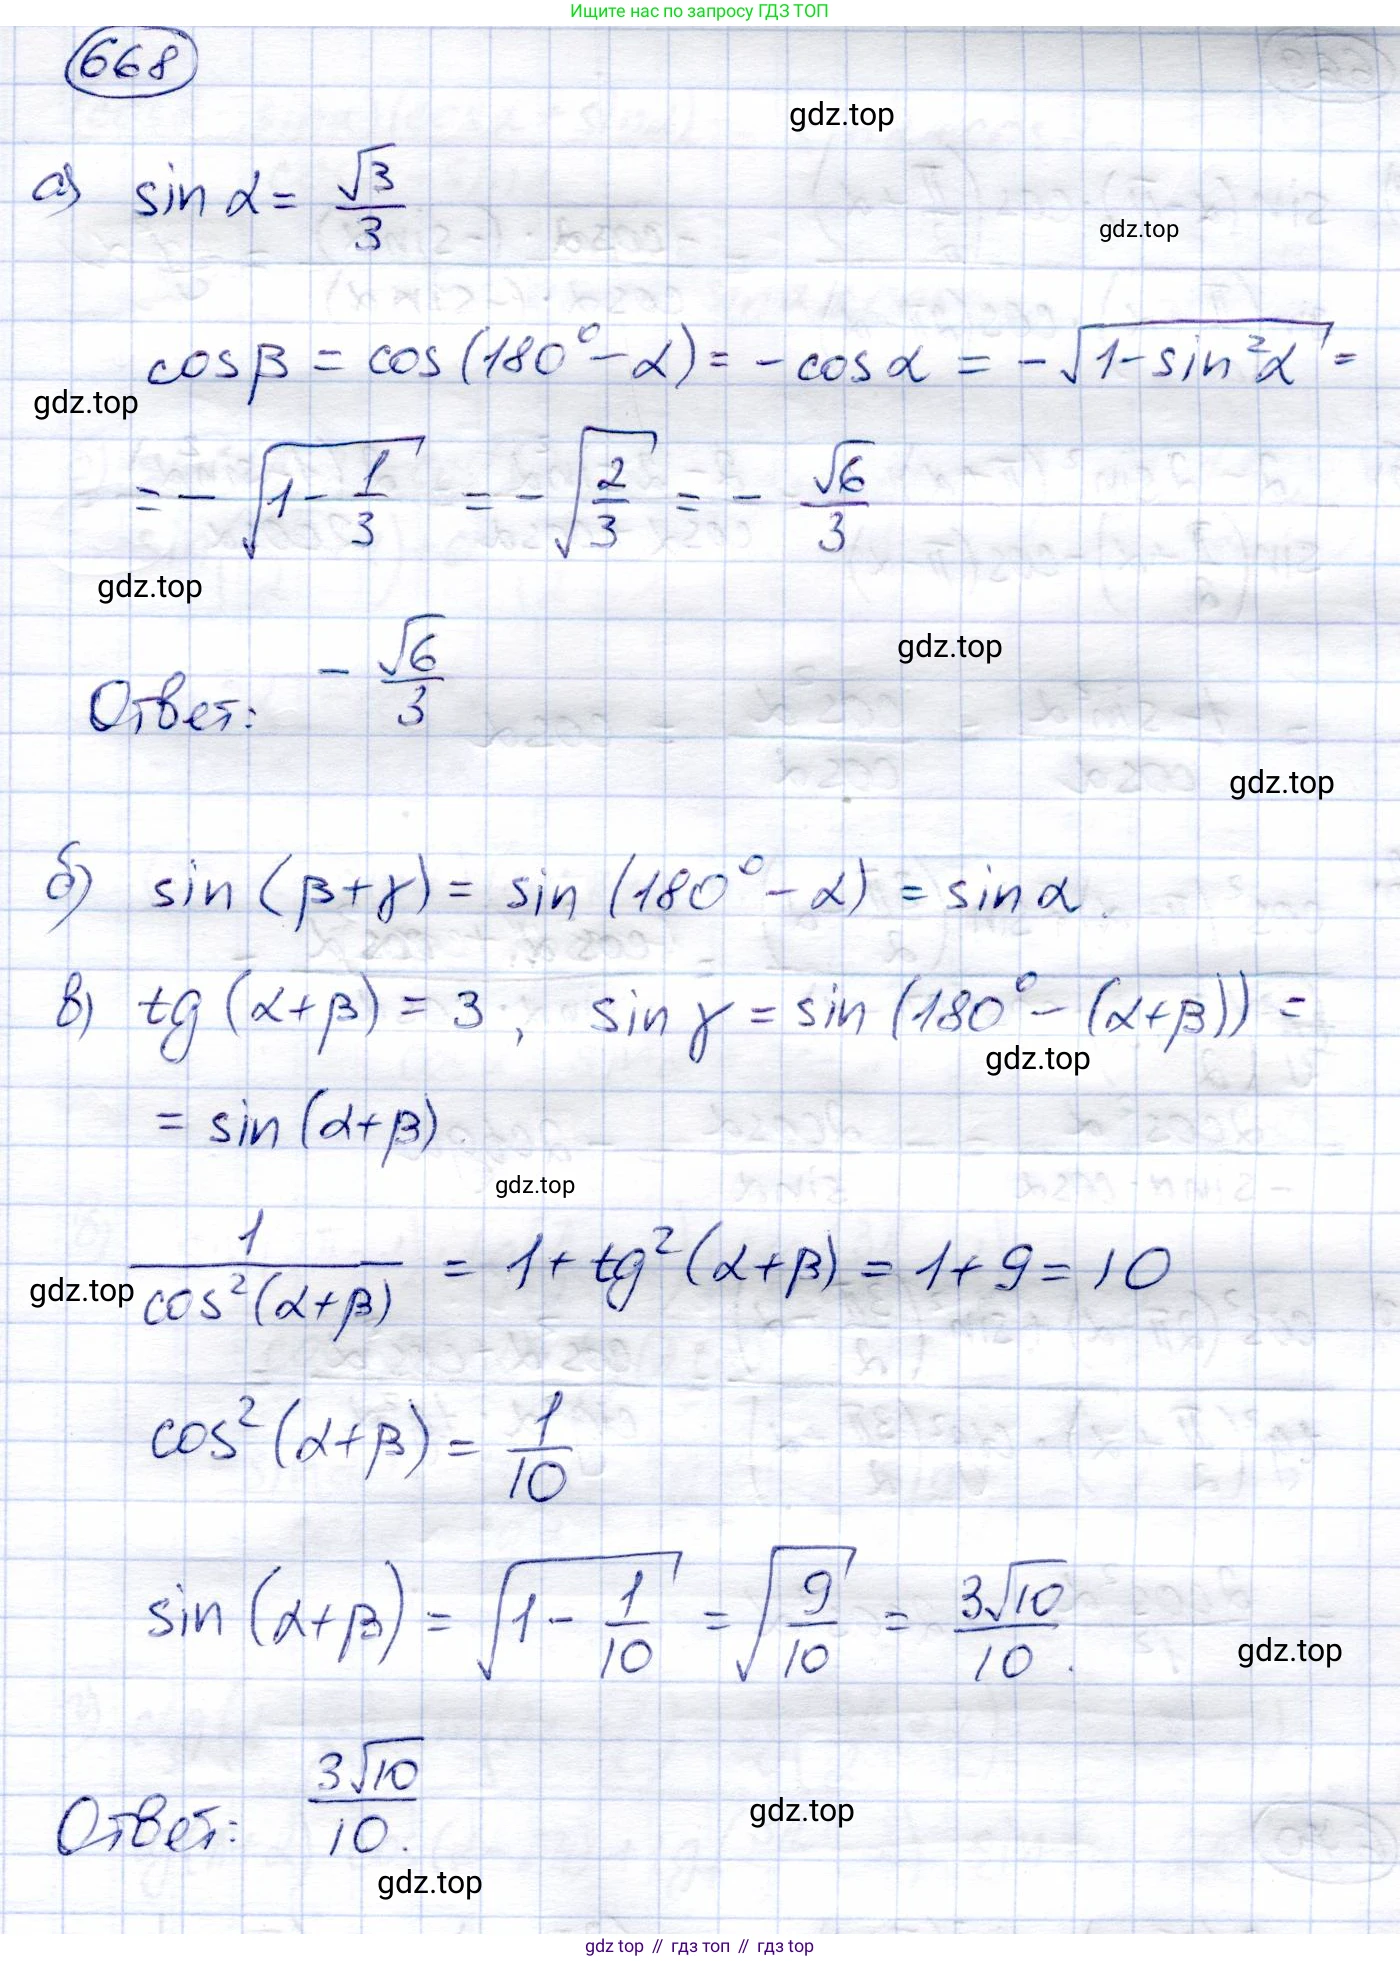 Ищите нас по запросу ГДЗ ТОП
668
gdz.top
а) sin α = √3/3
gdz.top
cos β = cos(180° - α) = - cos α = - √(1 - sin²α) =
gdz.top
= - √(1 - 1/3) = - √(2/3) = - √6/3
gdz.top
gdz.top
Ответ: - √6/3
gdz.top
б) sin (β + γ) = sin (180° - α) = sin α.
в) tg (α + β) = 3, sin γ = sin (180° - (α + β)) =
gdz.top
= sin (α + β).
gdz.top
1/cos²(α + β) = 1 + tg²(α + β) = 1 + 9 = 10
gdz.top
cos²(α + β) = 1/10
sin (α + β) = √(1 - 1/10) = √(9/10) = 3√10/10.
gdz.top
Ответ: 3√10/10.
gdz.top
gdz.top
gdz top // гдз топ // гдз top